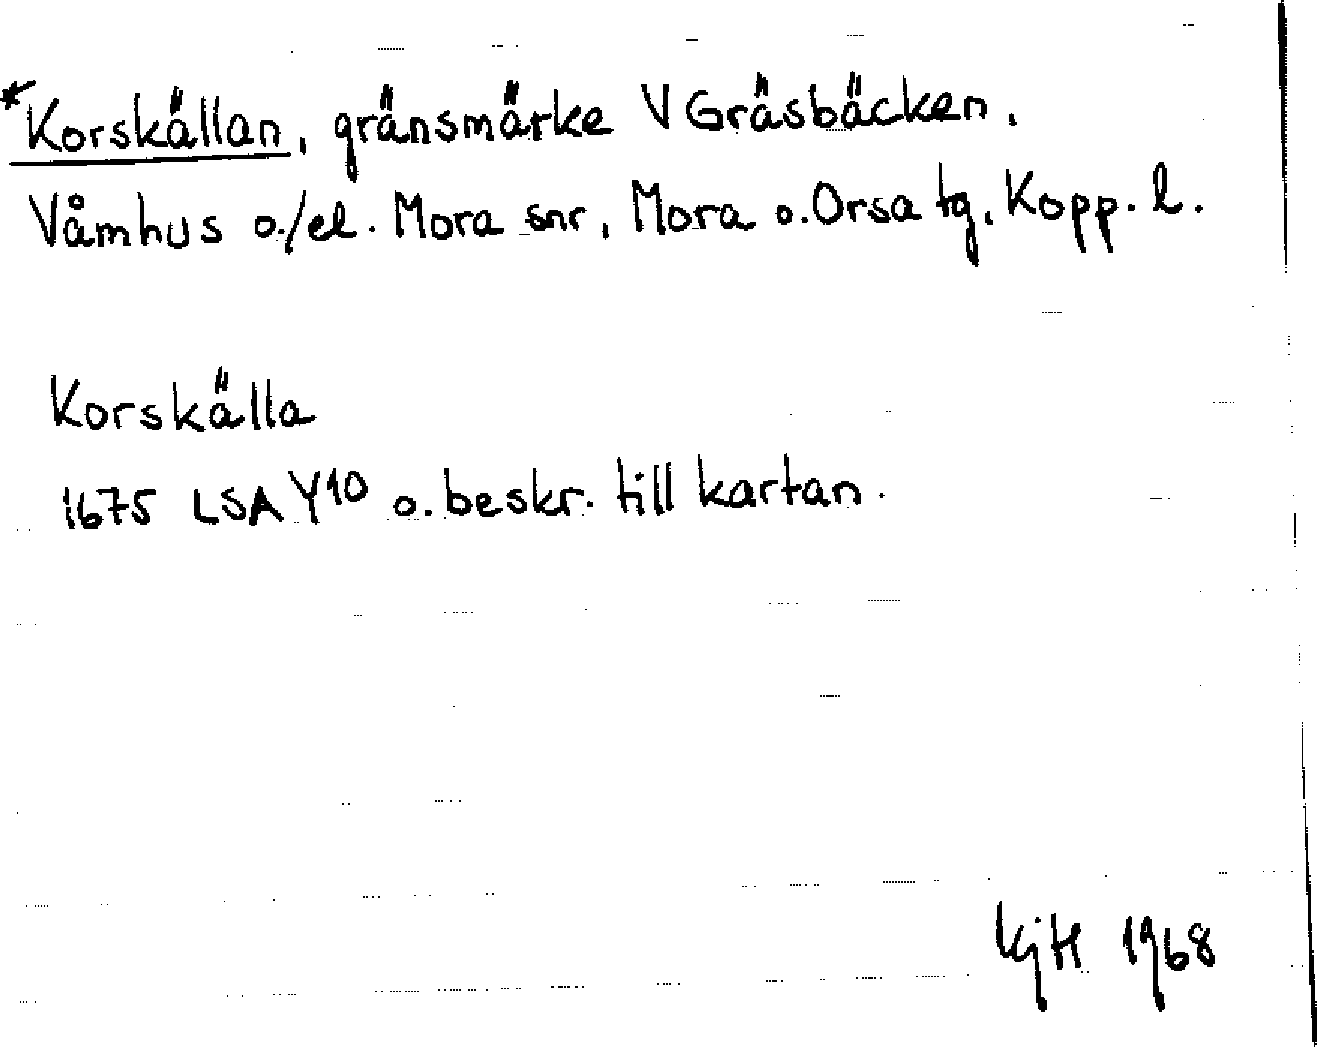 *Korskällan, gränsmärke V Gräsbäcken.
Våmhus o./el. Mora snr, Mora o. Orsa tg. Kopp. l.
Korskälla
1675 LSA Y10 o. beskr. till kartan.
KjH 1968